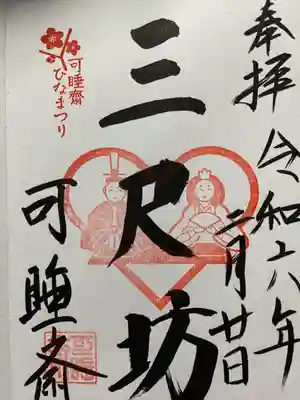 奉拝 令和六年
二月廿日
三尺坊
可睡齋
ひなまつり
可睡斎